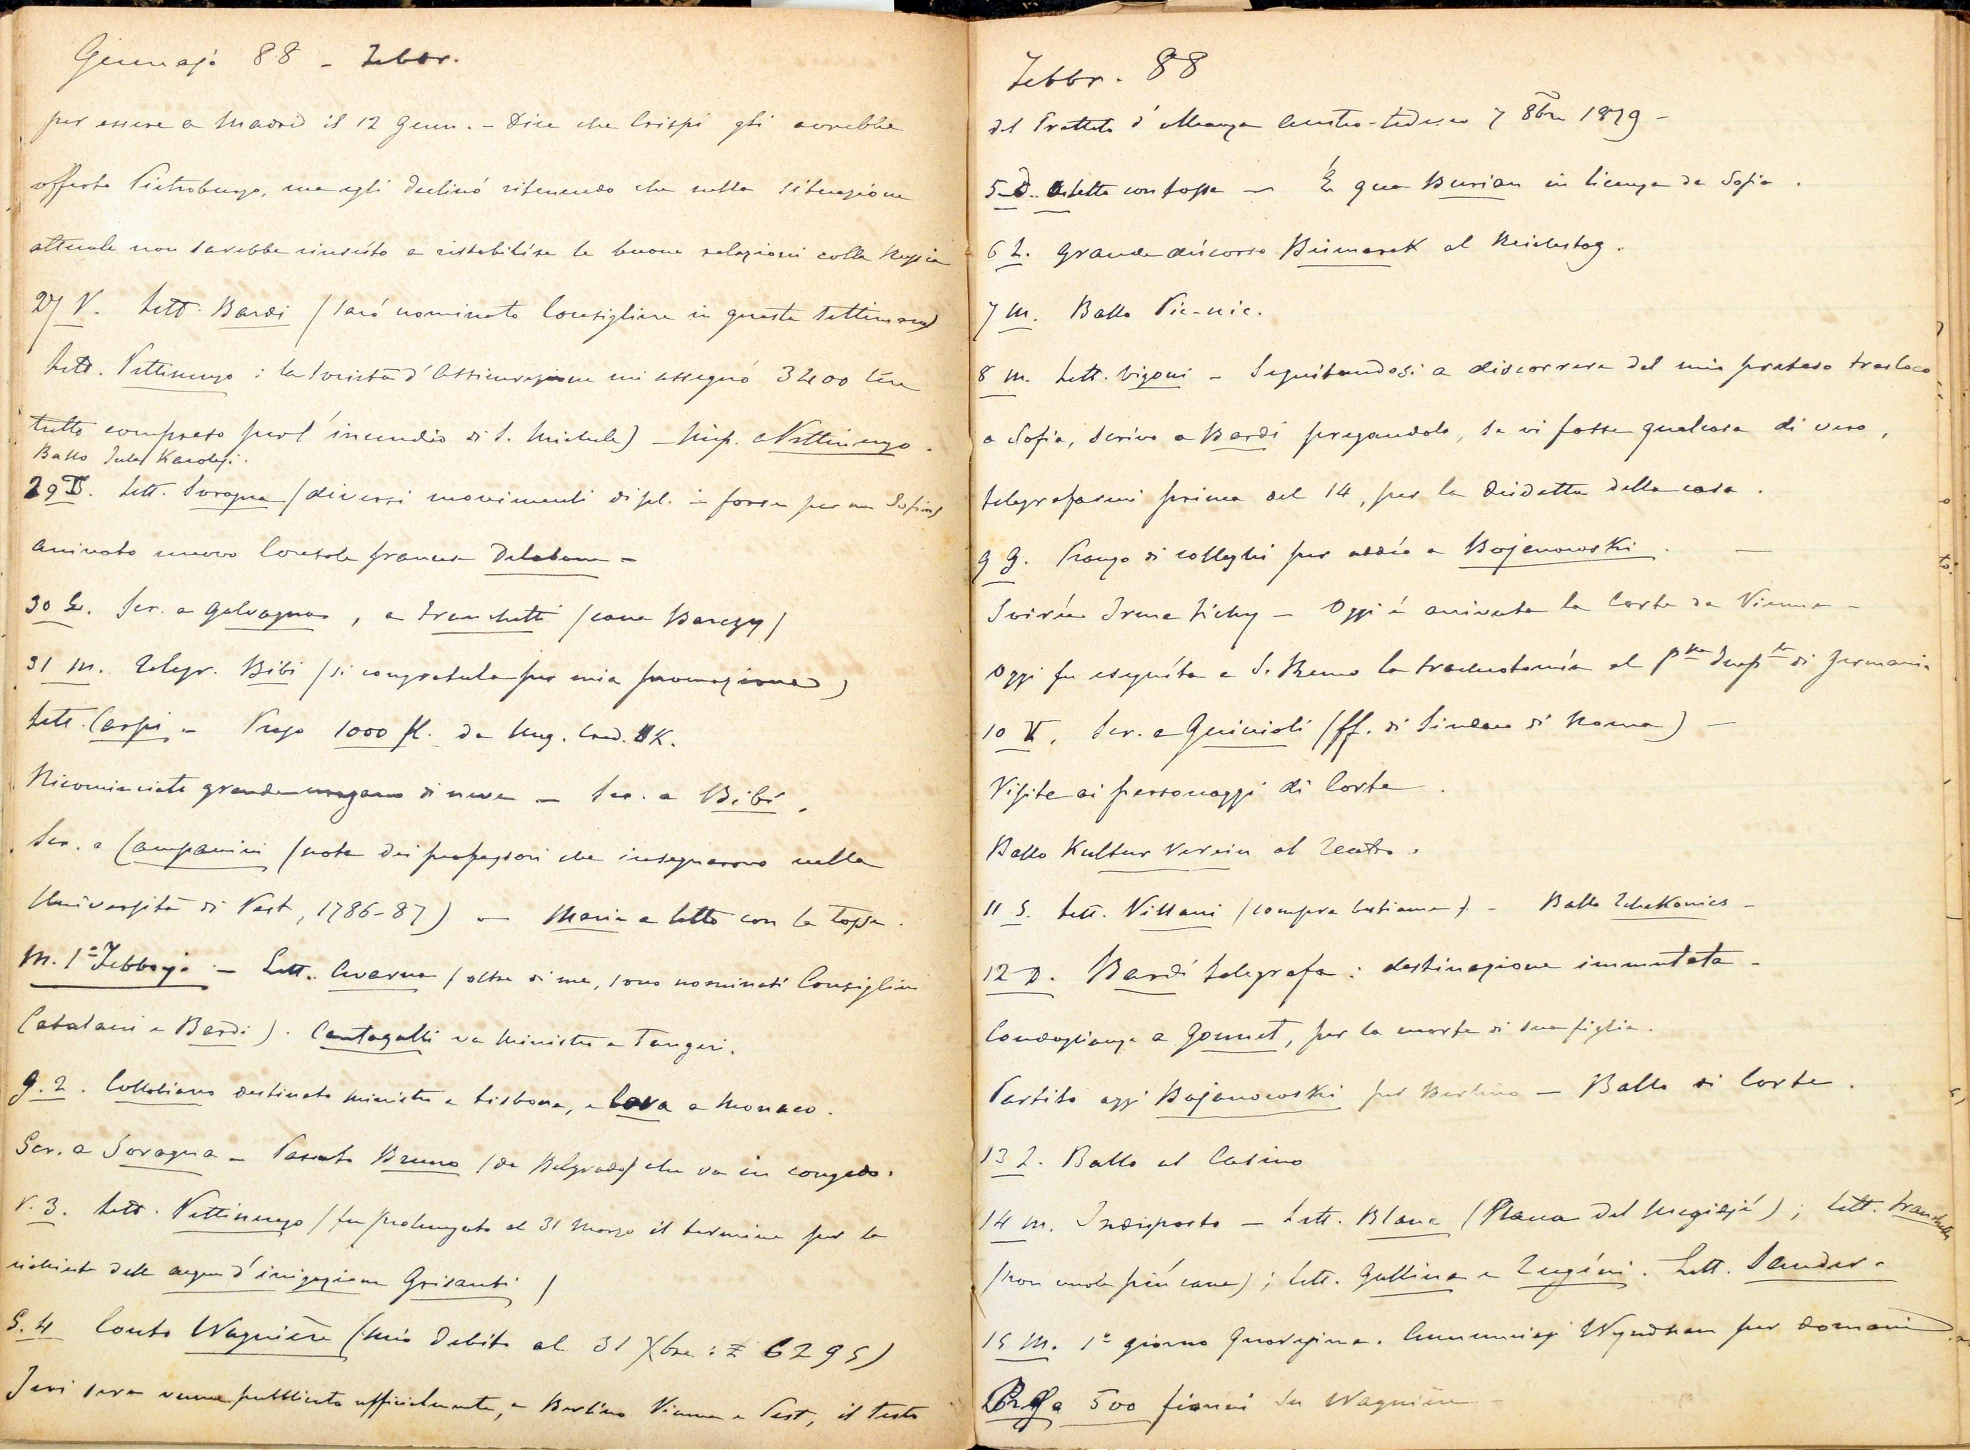 Gennajo 88 - Febbr.
per essere a Madrid il 12 Genn. - Dice che Crispi gli avrebbe
offerto Pietroburgo, ma egli declinò ritenendo che nella situazione
attuale non sarebbe riuscito a ristabilire le buone relazioni colla Russia
27 V. Lett. Bardi (sarò nominato Consigliere in questa settimana)
Lett. Pettinengo : la Società d'Assicurazione mi assegnò 3400 lire
tutto compreso per l'incendio di S. Michele) - Risp. a Pettinengo.
Ballo Karolyi.
29 D. Lett. Soragna (diversi movimenti dipl. in forse per me Sofia)
arrivato nuovo Console francese
30 L. Scr. a Galvagna, a Franchetti (cane Barczy)
31 M. Telegr. Bibi (si congratula per mia promozione)
Lett. Carpi - Prego 1000 fl. da Ung. Cred. BK.
Ricominciato grande uragano di neve - Scr. a Bibi.
Scr. a Campanini (nota dei professori che insegnarono nella
Università di Pest, 1786-87) - Maria a letto con la tosse.
M. 1° Febbrajo - Lett. Avarna (oltre di me, sono nominati Consiglieri
Catalani e Bardi). Cantagalli va Ministro a Tangeri.
G. 2. Collobiano destinato ministro a Lisbona, e Cova a Monaco.
Scr. a Soragna - Passato Bruno (da Belgrado) che va in congedo.
V. 3. Lett. Pettinengo (fu prolungato al 31 Marzo il termine per la
richiesta delle acque d'irrigazione Grisanti)
S. 4 Conto Wagnière (mio debito al 31 Xbre : 6295)
Ieri sera venne pubblicato ufficialmente, a Berlino Vienna e Pest, il testo
Febbr. 88
del Trattato d'alleanza Austro-tedesca 7 8bre 1879 -
5 D. A letto con tosse - È qua Burian in licenza da Sofia.
6 L. Grande discorso Bismarck al Reichstag.
7 M. Ballo Pic-nic.
8 M. Lett. Vigoni - Seguitandosi a discorrere del mio preteso trasloco
a Sofia, scrivo a Bardi pregandolo, se vi fosse qualcosa di vero,
telegrafarmi prima del 14, per la disdetta della casa.
9 G. Pranzo di colleghi per addio a Bojanowski. -
Soirée Irma Zichy - Oggi è arrivata la Corte da Vienna -
Oggi fu eseguita a S. Remo la tracheotomia al Ppe Imple di Germania
10 V. Scr. a Guiccioli (ff. di Sindaco di Roma) -
Visite ai personaggi di Corte.
Ballo Kultur Verein al Teatro.
11 S. Lett. Villani (compra bestiame) - Ballo Tchekonics -
12 D. Bardi telegrafa : destinazione immutata -
Condoglianze a Gonnet, per la morte di sua figlia.
Partito oggi Bojanowski per Berlino - Ballo di Corte.
13 L. Ballo al Casino
14 M. Indisposto - Lett. Blanc (Piano del Megidjé) ; Lett. Franchetti
(non vuole più cane) ; Lett. Gallina e Zugini. Lett. Sander.
15 M. 1° giorno Quaresima. Annunziasi Wyndham per domani.
Prego 500 fiorini su Wagnière -